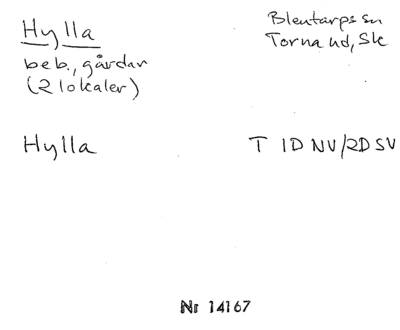 Hylla
Blentarps sn
Torna hd, Sk
beb., gårdar
(2 lokaler)
Hylla
T 1D NV/2D SV
Nr 14167